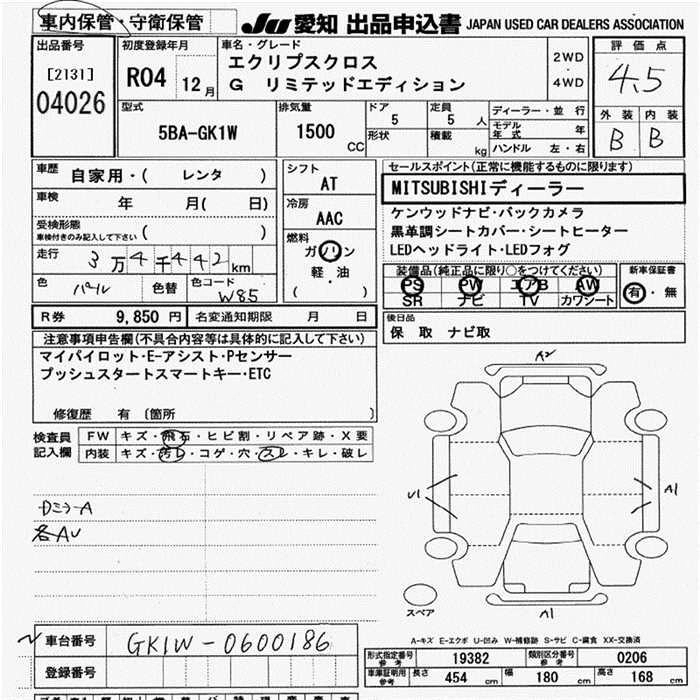 車内保管・守衛保管
JU 愛知 出品申込書 JAPAN USED CAR DEALERS ASSOCIATION
出品番号
[2131]
04026
初度登録年月
R04 12月
車名・グレード
エクリプスクロス
G リミテッドエディション
2WD
・
4WD
評価点
4.5
外装 内装
B B
型式
5BA-GK1W
排気量
1500
CC
ドア
5
定員
5
人
形状
積載
kg
ディーラー・並行
モデル年式 年
ハンドル 左・右
車歴
自家用・( レンタ )
車検
年 月( 日)
受検形態
車検付きのみ記入して下さい
( )
走行
3万4千442km
色
パール
色替
色コード
W85
シフト
AT
冷房
AAC
燃料
ガソリン
軽・油
( )
セールスポイント(正常に機能するものに限ります)
MITSUBISHIディーラー
ケンウッドナビ・バックカメラ
黒革調シートカバー・シートヒーター
LEDヘッドライト・LEDフォグ
装備品(純正品に限り○をつけてください)
PS PW エアB AW
SR ナビ TV カワシート
新車保証書
有・無
R券 9,850円 名変通知期限 月 日
後日品
保 取 ナビ取
注意事項申告欄(不具合内容等は具体的に記入して下さい)
マイパイロット・E-アシスト・Pセンサー
プッシュスタートスマートキー・ETC
修復歴 有 〔箇所 〕
検査員
記入欄
FW キズ・飛石・ヒビ割・リペア跡・X要
内装 キズ・汚レ・コゲ・穴・スレ・キレ・破レ
DミラーA
各AU
A2
U1
A1
A1
スペア
A-キズ E-エクボ U-凹み W-補修跡 S-サビ C-腐食 XX-交換済
車台番号
GK1W-0600186
登録番号
形式指定番号
参考
19382
類別区分番号
参考
0206
車庫証明用
参考
長さ 454 cm 幅 180 cm 高さ 168 cm